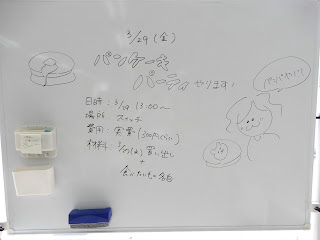 3/29(金)
パンケーキ
パーティ やります!
日時: 3/29 13:00〜
場所: スイッチ
費用: 実費(300円くらい)
材料: (火)買い出し
+
食べたいもの各自